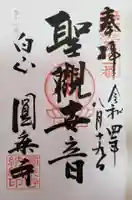 奉拝
令和四年
八月十五日
聖觀世音
白山
圓乗寺